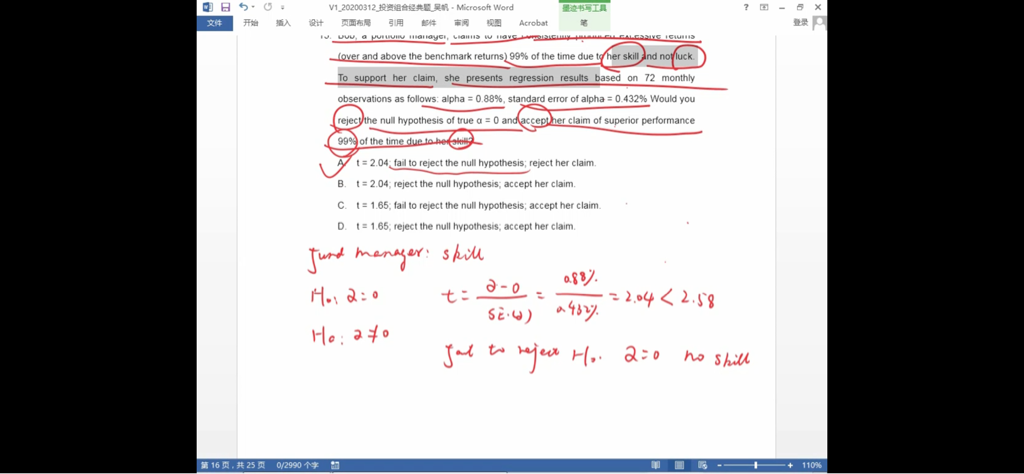 V1_20200312_投资组合经典题_吴帆 - Microsoft Word
墨迹书写工具
文件 开始 插入 设计 页面布局 引用 邮件 审阅 视图 Acrobat 笔 登录
(over and above the benchmark returns) 99% of the time due to her skill and not luck.
To support her claim, she presents regression results based on 72 monthly
observations as follows: alpha = 0.88%, standard error of alpha = 0.432% Would you
reject the null hypothesis of true α = 0 and accept her claim of superior performance
99% of the time due to her skill?
A. t = 2.04; fail to reject the null hypothesis; reject her claim.
B. t = 2.04; reject the null hypothesis; accept her claim.
C. t = 1.65; fail to reject the null hypothesis; accept her claim.
D. t = 1.65; reject the null hypothesis; accept her claim.
fund manager: skill
H0: α=0
t = α-0 / SE(α) = 0.88% / 0.432% = 2.04 < 2.58
H0: α≠0
fail to reject H0. α=0 no skill
第 16 页，共 25 页 0/2990 个字 110%